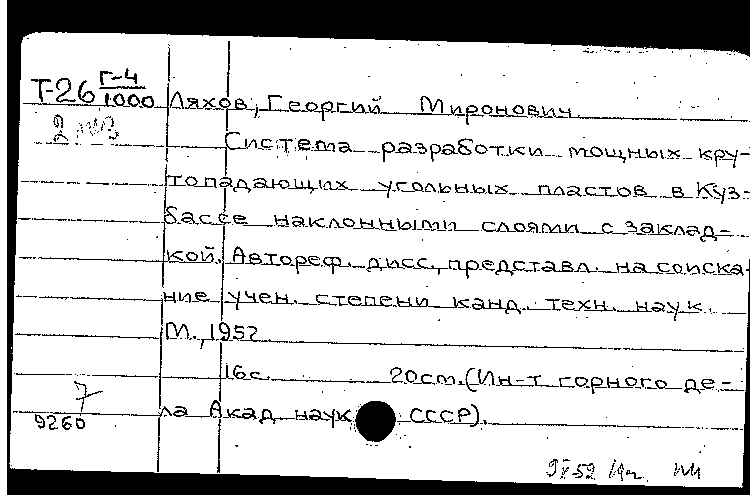 Т-26 Г-4/1000 Ляхов, Георгий Миронович.
2 экз
Система разработки мощных кру-
топадающих угольных пластов в Куз-
бассе наклонными слоями с заклад-
кой. Автореф. дисс., представл. на соиска-
ние учен. степени канд. техн. наук.
М., 1952
16с. 20см. (Ин-т горного де-
ла Акад. наук СССР).
7
9260